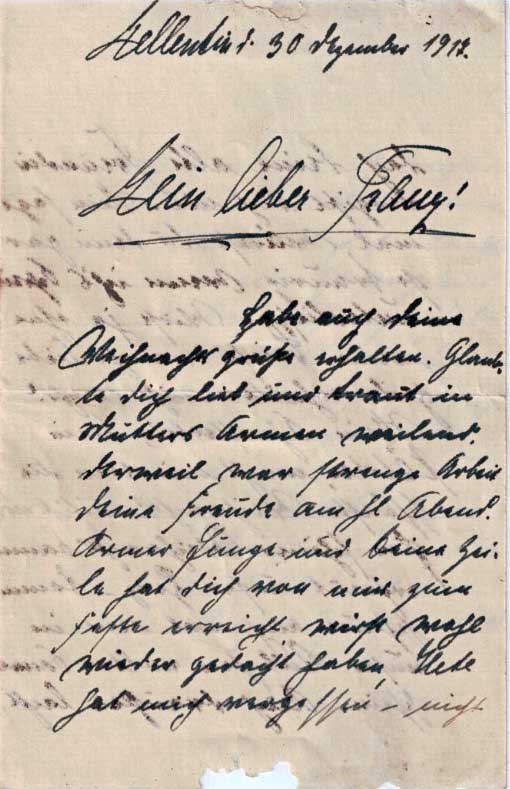 Hellentin d. 30 Dezember 1912.
Mein lieber Franz!
Habe auch deine
Weihnachtsgrüße erhalten. Glaub-
te dich lieb und traut in
Mutters Armen weilend.
derweil war strenge Arbeit
deine Freude am hl Abend.
Armer Junge und keine Zei-
le hat dich von mir zum
Feste erreicht wirst wohl
wieder gedacht haben,
hat mich vergessen – nicht